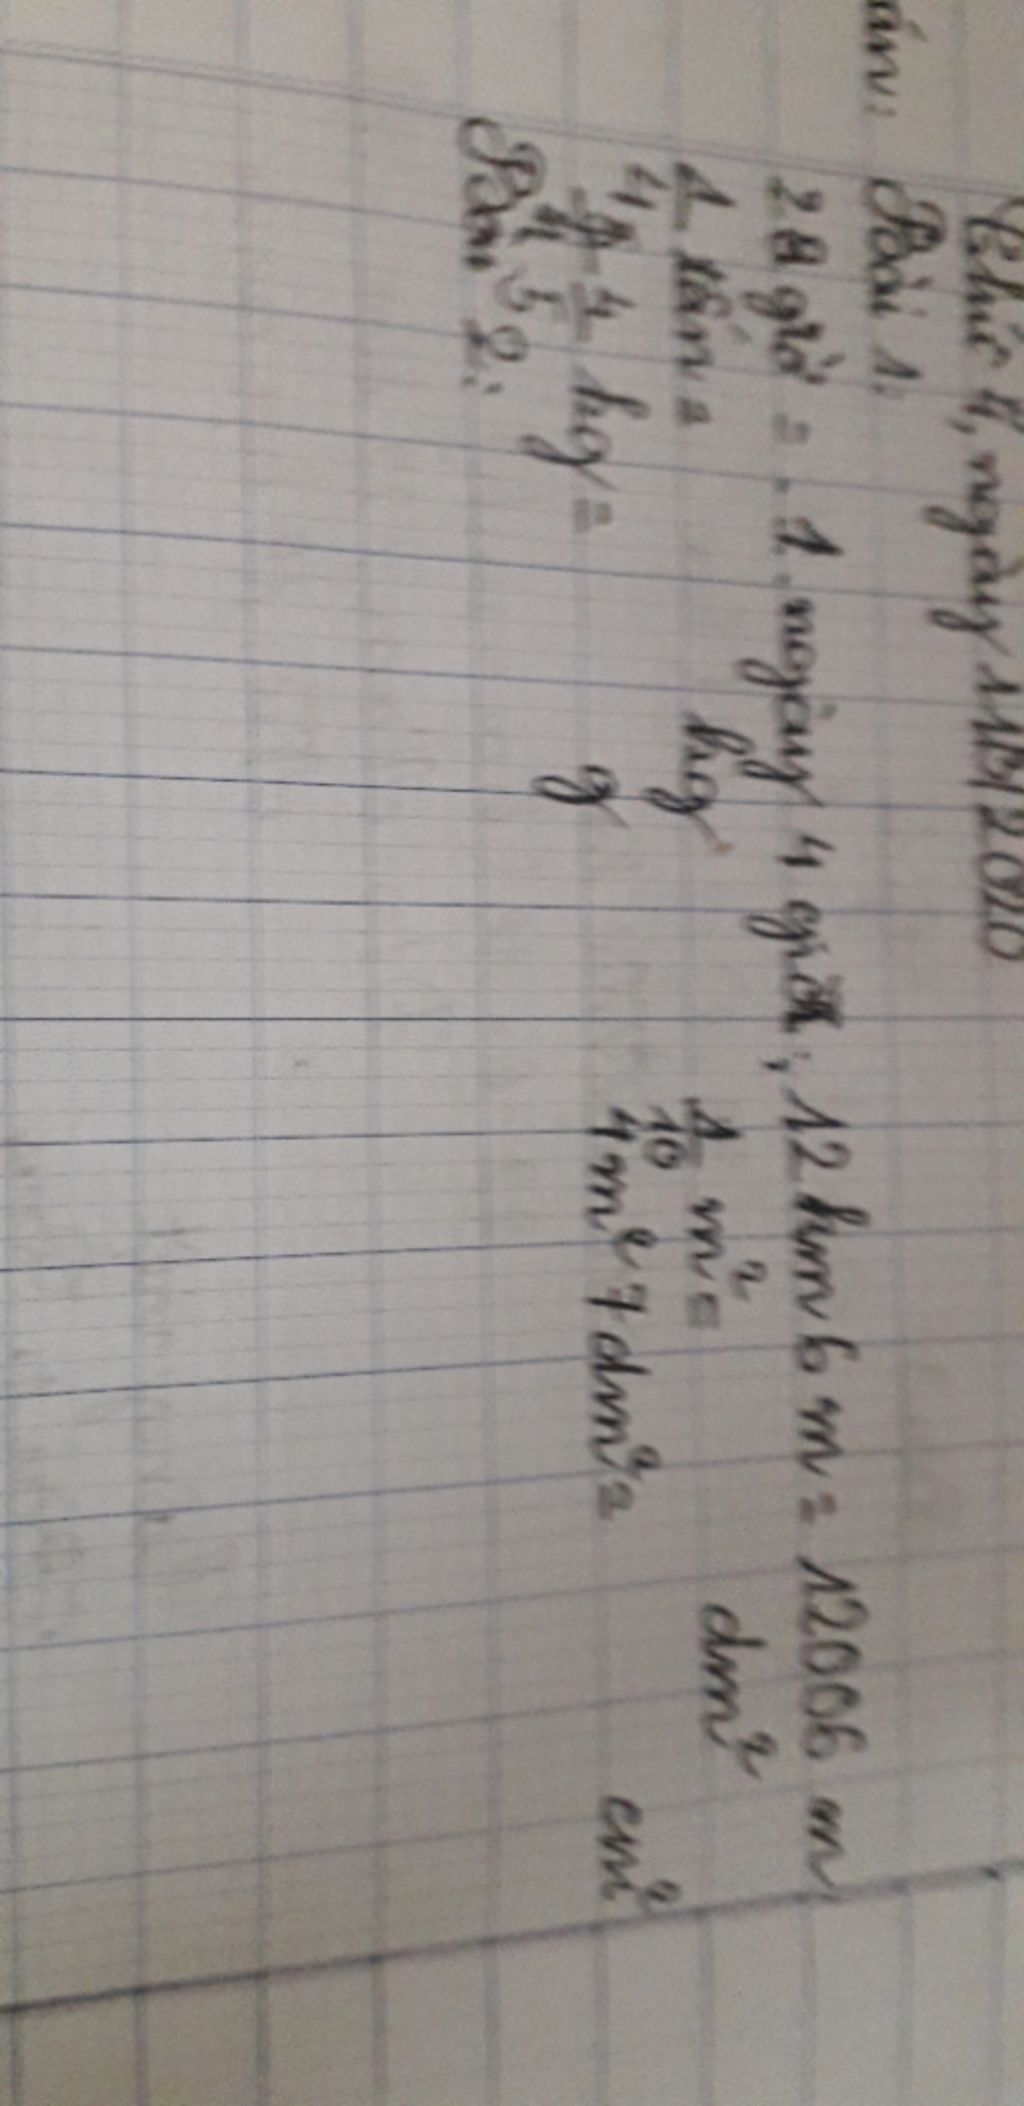 Thứ 4, ngày
Bài 1:
28 giờ = 1 ngày 4 giờ; 12 km 6 m = 12006 m
1/4 tấn = kg 1/10 m² = dm²
4/5 kg = g 4m² 7dm² = cm²
Bài 2: